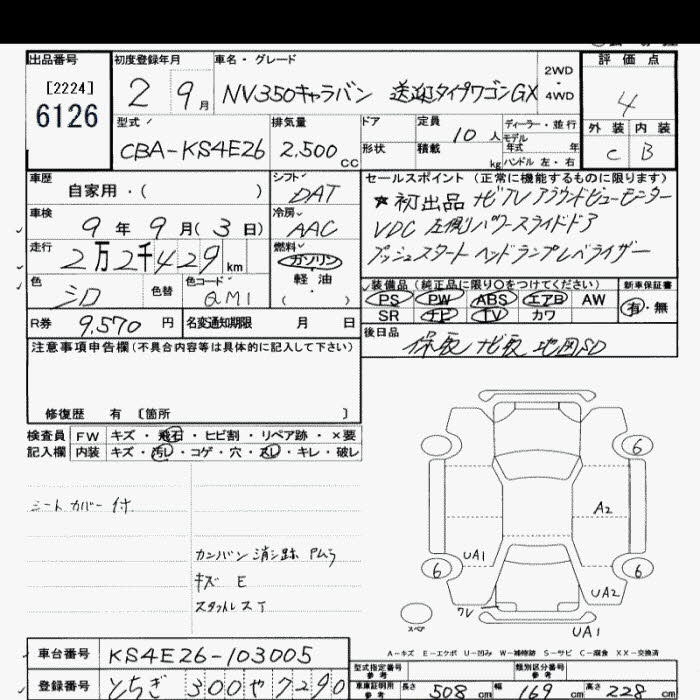 出品番号 初度登録年月 車名・グレード 評価点
[2224]
6126
2 9月 NV350キャラバン 送迎タイプワゴンGX 2WD・4WD 4
型式 排気量 ドア 定員 10人 ディーラー・並行 外装 内装
CBA-KS4E26 2,500cc 形状 積載 kg モデル年式 年 ハンドル 左・右 C B
車歴 自家用・( ) シフト DAT セールスポイント (正常に機能するものに限ります)
★初出品 ナビTV アラウンドビューモニター
車検 9年9月(3日) 冷房 AAC VDC 左側パワースライドドア
走行 2万2千429km 燃料 ガソリン・軽油・( ) プッシュスタート ヘッドランプレベライザー
色 シロ 色替 色コード QM1 装備品 (純正品に限り○をつけてください) 新車保証書
PS PW ABS エアB AW 有・無
SR ナビ TV カワ
R券 9,570円 名変通知期限 月 日 後日品 保取 ナビ取 地図SD
注意事項申告欄(不具合内容等は具体的に記入して下さい)
修復歴 有 〔箇所 〕
検査員 FW キズ・飛石・ヒビ割・リペア跡・×要
記入欄 内装 キズ・汚レ・コゲ・穴・スレ・キレ・破レ
シートカバー付
カンバン消シ跡 Pムラ
キズ E
スタットレスT
6
A2
UA1
6 6
UA2
ワレ
スペア
UA1
A-キズ E-エクボ U-凹み W-補修跡 S-サビ C-腐食 XX-交換済
車台番号 KS4E26-103005 型式指定番号 参考 類別区分番号 参考
登録番号 とちぎ 300 や 7290 車庫証明用 参考 長さ 508cm 幅 169cm 高さ 228cm